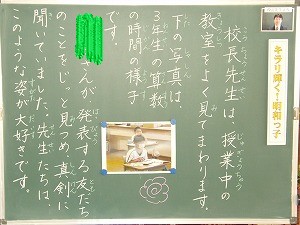 キラリ輝く！昭和っ子
校長先生は、授業中の
教室をよく見てまわります。
下の写真は、
3年生の算数
の時間の様子
です。
さんが発表する友だち
のことをじっと見つめ、真剣に
聞いていました。先生たちは、
このような姿が大好きです。